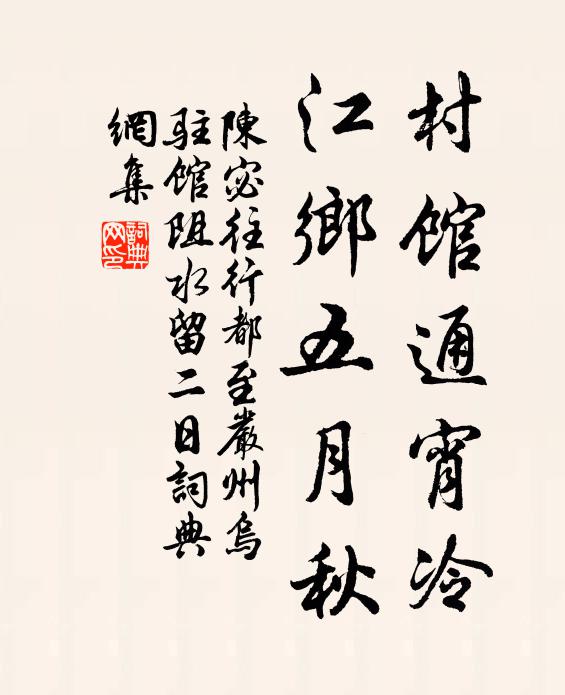 村館通宵冷
江鄉五月秋
陳宓往行都至嚴州烏
駐館阻水留二日詞典
網集
詞典
网印